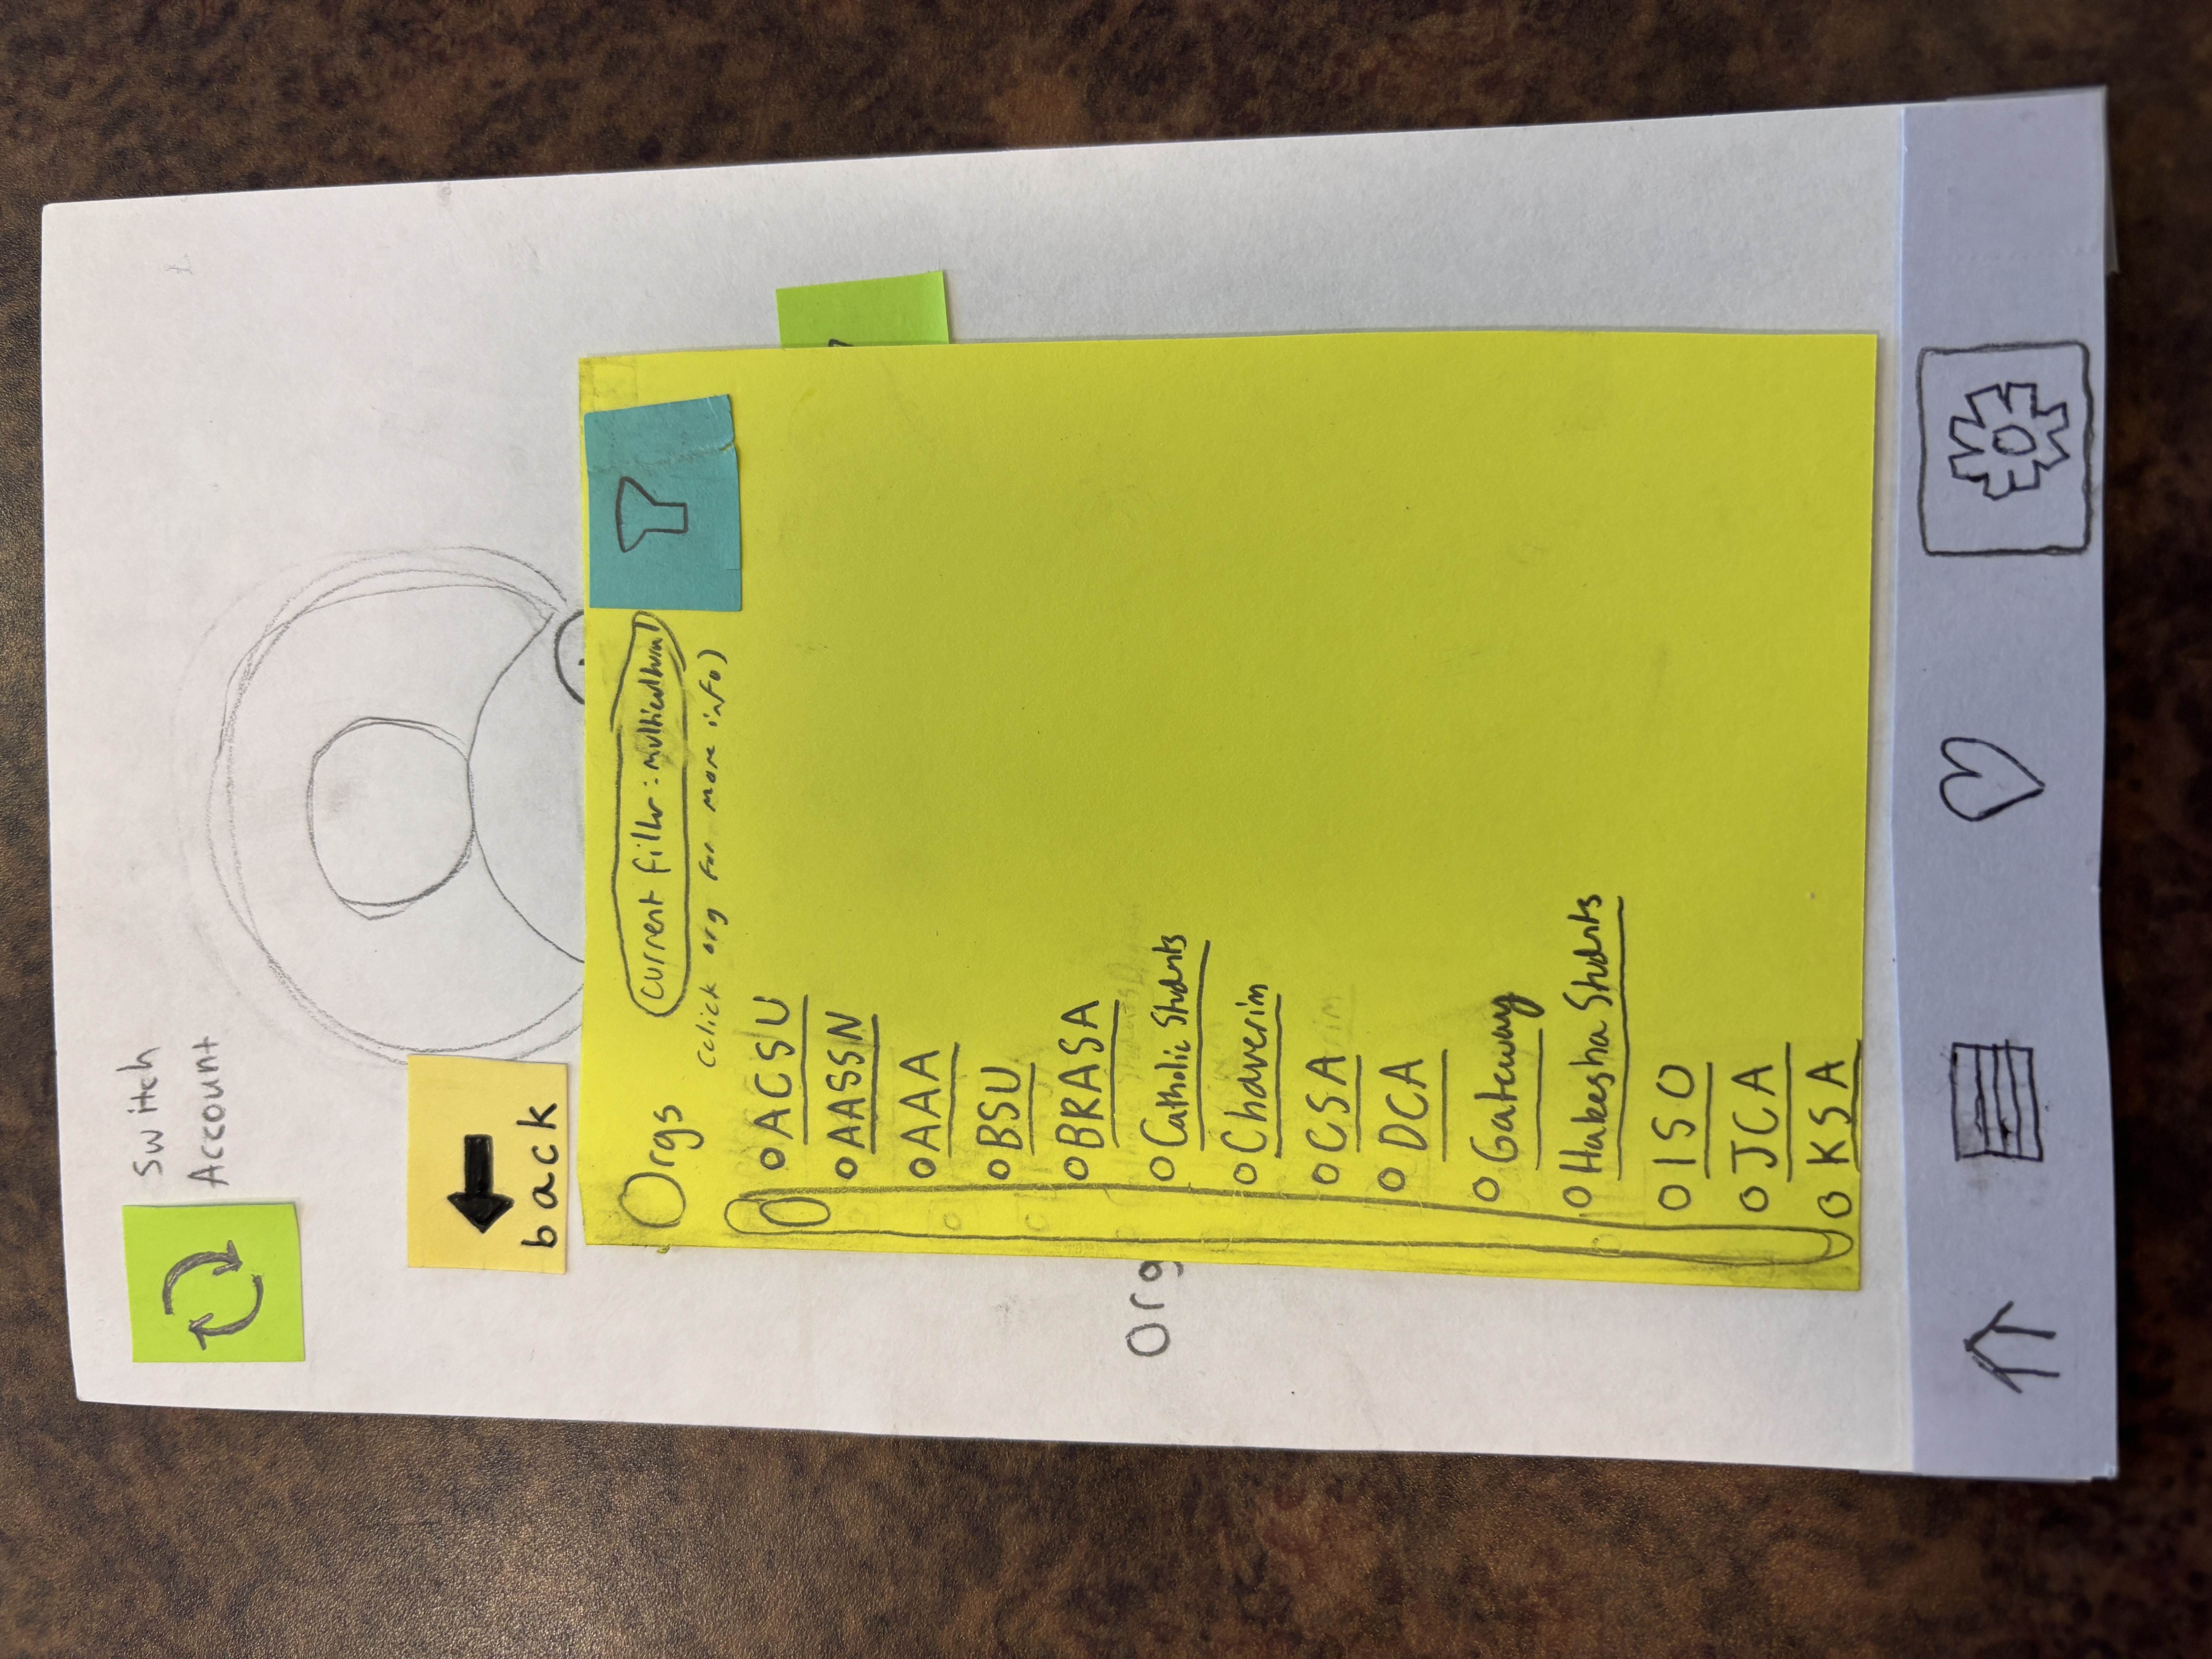 Switch
Account
back
Orgs
current filter: multicultural
(click org for more info)
ACSU
AASSN
AAA
BSU
BRASA
Org
Catholic Students
Chaverim
CSA
DCA
Gateway
Hakesha Students
ISO
JCA
KSA